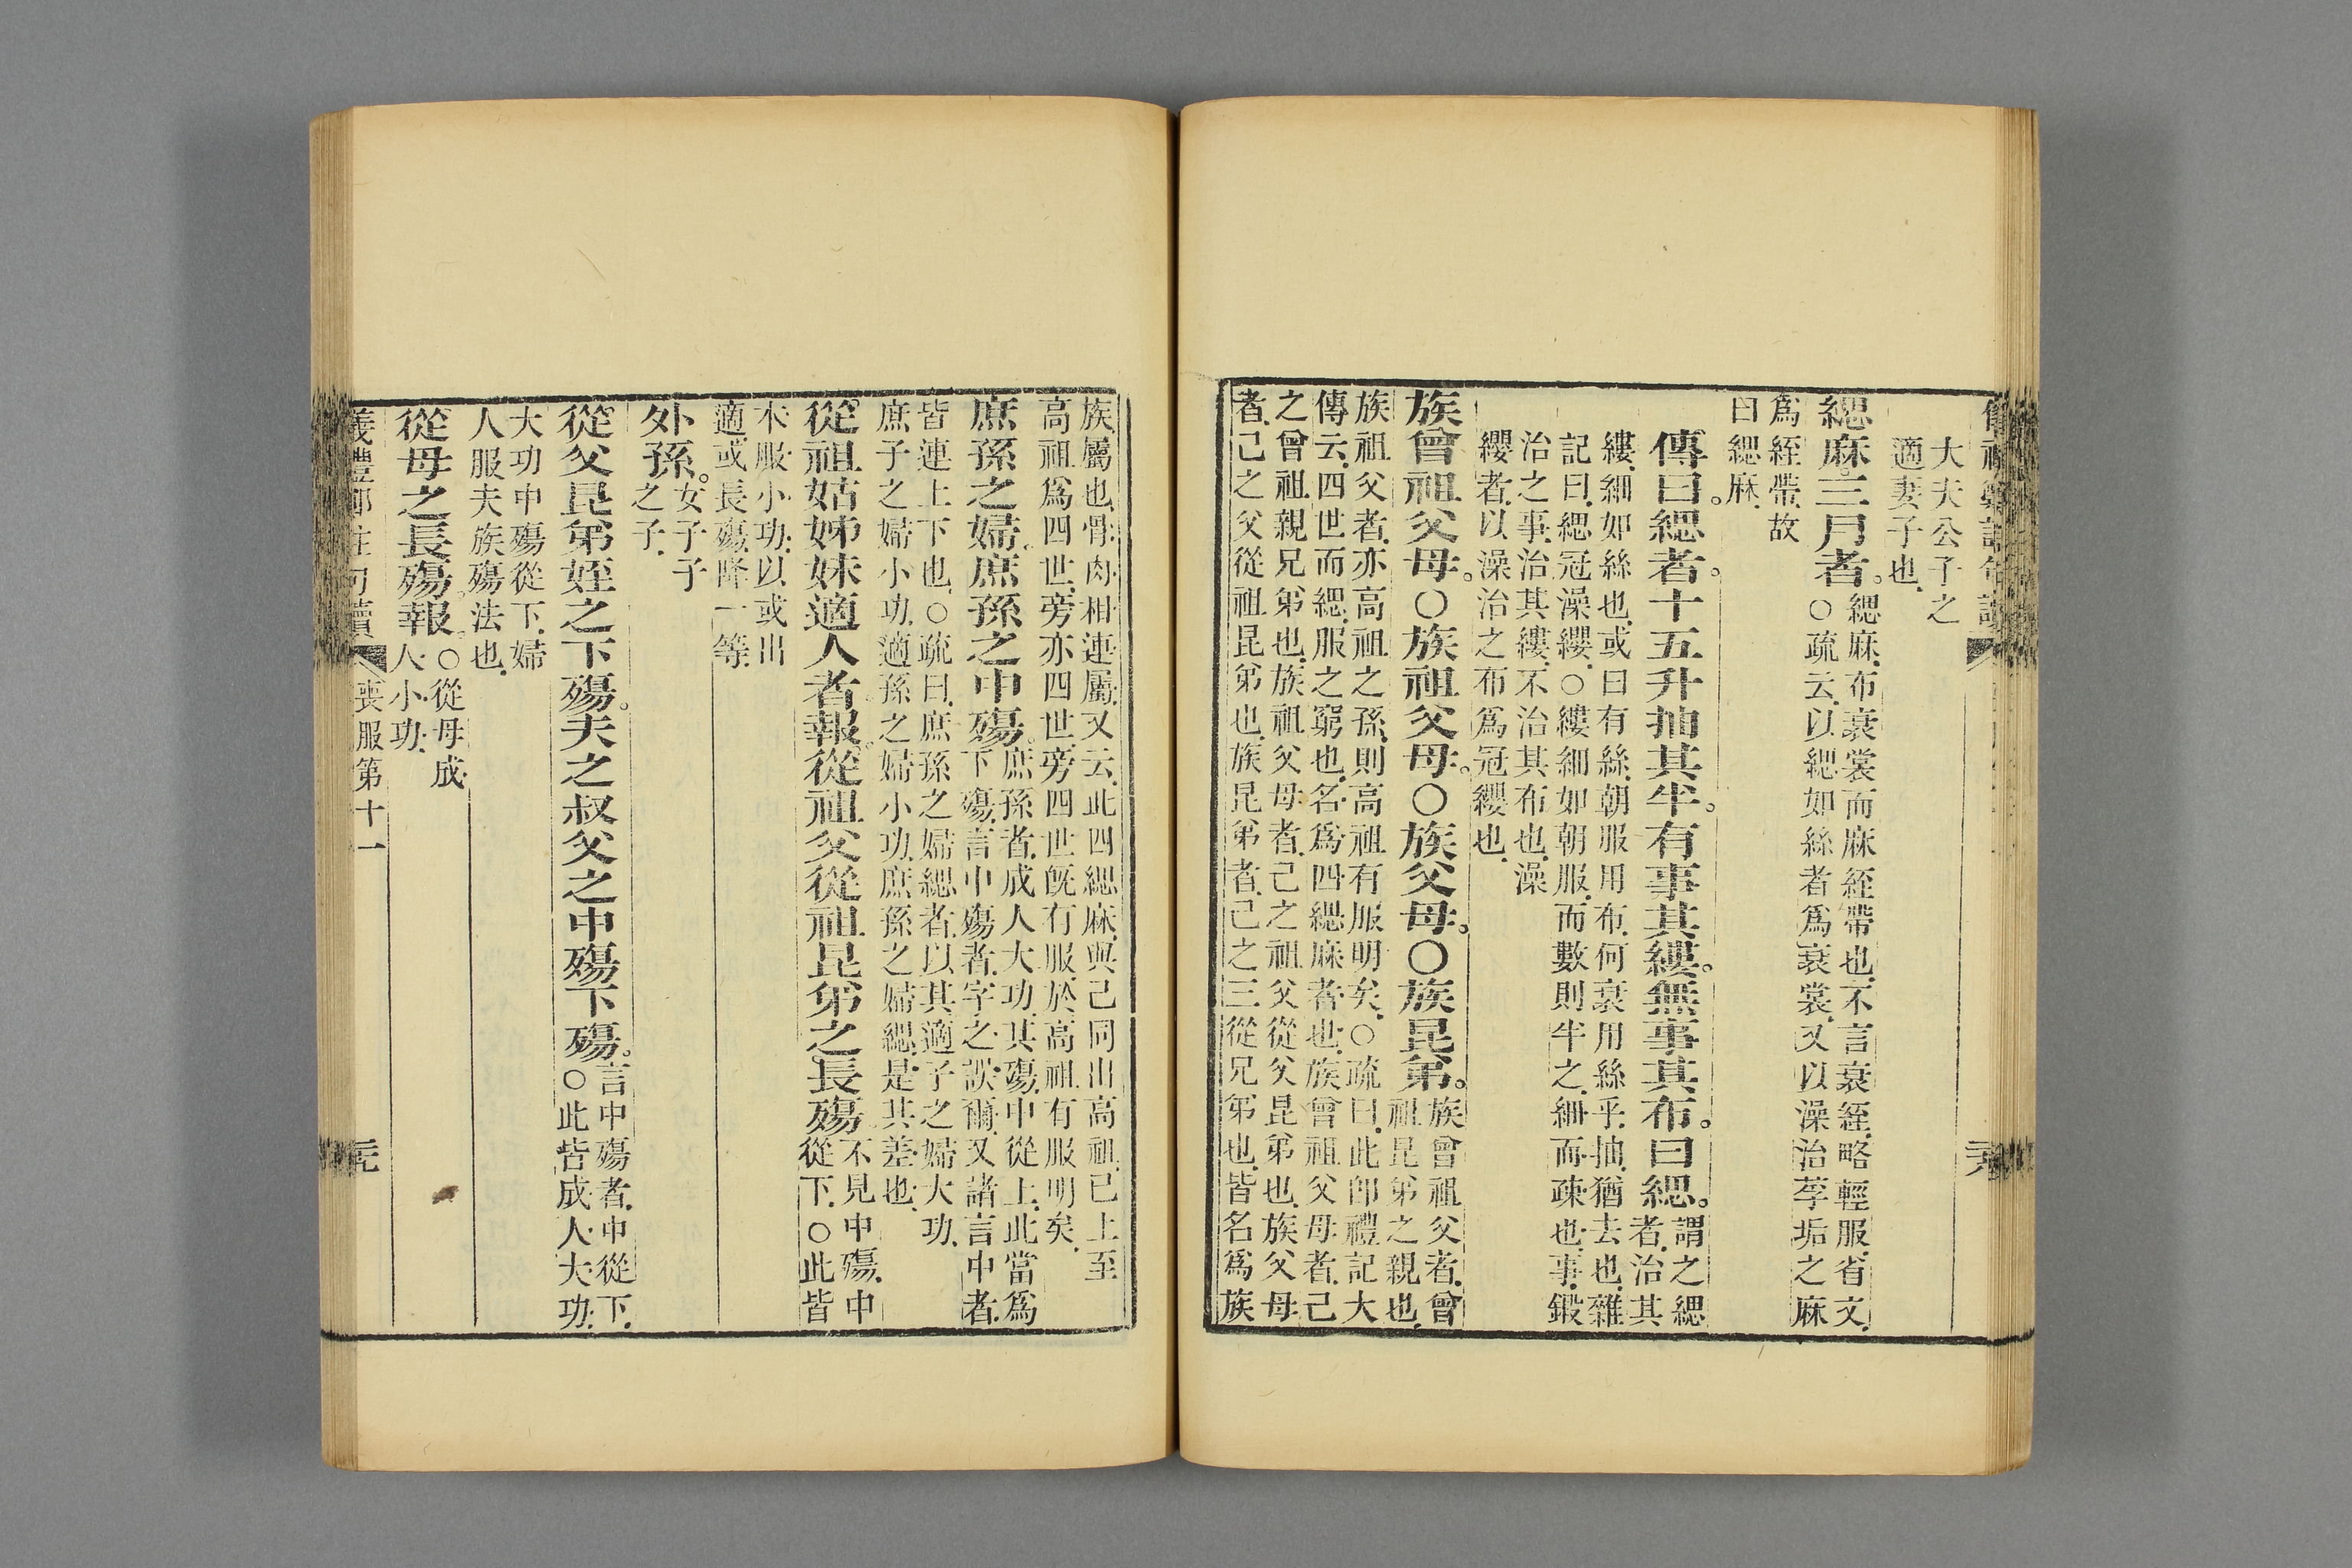 大夫公子之
適妻子也、
緦麻。三月者。緦麻、布衰裳而麻絰帶也、不言衰絰、略輕服、省文、
○疏云、以緦如絲者爲衰裳、又以澡治莩垢之麻
爲絰帶、故
曰緦麻、
傳曰。緦者。十五升抽其半。有事其縷。無事其布。曰緦。謂之緦
者、治其
縷、細如絲也、或曰有絲、朝服用布、何衰用絲乎、抽、猶去也、雜
記曰、緦冠澡纓、○縷細如朝服、而數則半之、細而疎也、事、鍛
治之事、治其縷、不治其布也、澡
纓者、以澡治之布爲冠纓也、
族曾祖父母。○族祖父母。○族父母。○族昆弟。族曾祖父者、曾
祖昆弟之親也、
族祖父者、亦高祖之孫、則高祖有服明矣、○疏曰、此卽禮記大
傳云、四世而緦、服之窮也、名爲四緦麻者也、族曾祖父母者、己
之曾祖親兄弟也、族祖父母者、己之祖父從父昆弟也、族父母
者、己之父從祖昆弟也、族昆弟者、己之三從兄弟也、皆名爲族
族屬也、骨肉相連屬、又云、此四緦麻、與己同出高祖、已上至
高祖爲四世、旁亦四世、旁四世旣有服、於高祖有服明矣、
庶孫之婦。庶孫之中殤。庶孫者、成人大功、其殤、中從上、此當爲
下殤、言中殤者、字之誤爾、又諸言中者、
皆連上下也、○疏曰、庶孫之婦緦者、以其適子之婦大功、
庶子之婦小功、適孫之婦小功、庶孫之婦緦、是其差也、
從祖姑姊妹適人者。報。從祖父從祖昆弟之長殤。不見中殤、中
從下、○此皆
本服小功、以或出
適、或長殤、降一等、
外孫。女子子
之子、
從父昆弟姪之下殤。夫之叔父之中殤下殤。言中殤者、中從下、
○此皆成人大功、
大功中殤從下、婦
人服夫族殤法也、
從母之長殤。報。○從母成
人小功、
儀禮鄭注句讀 喪服第十一